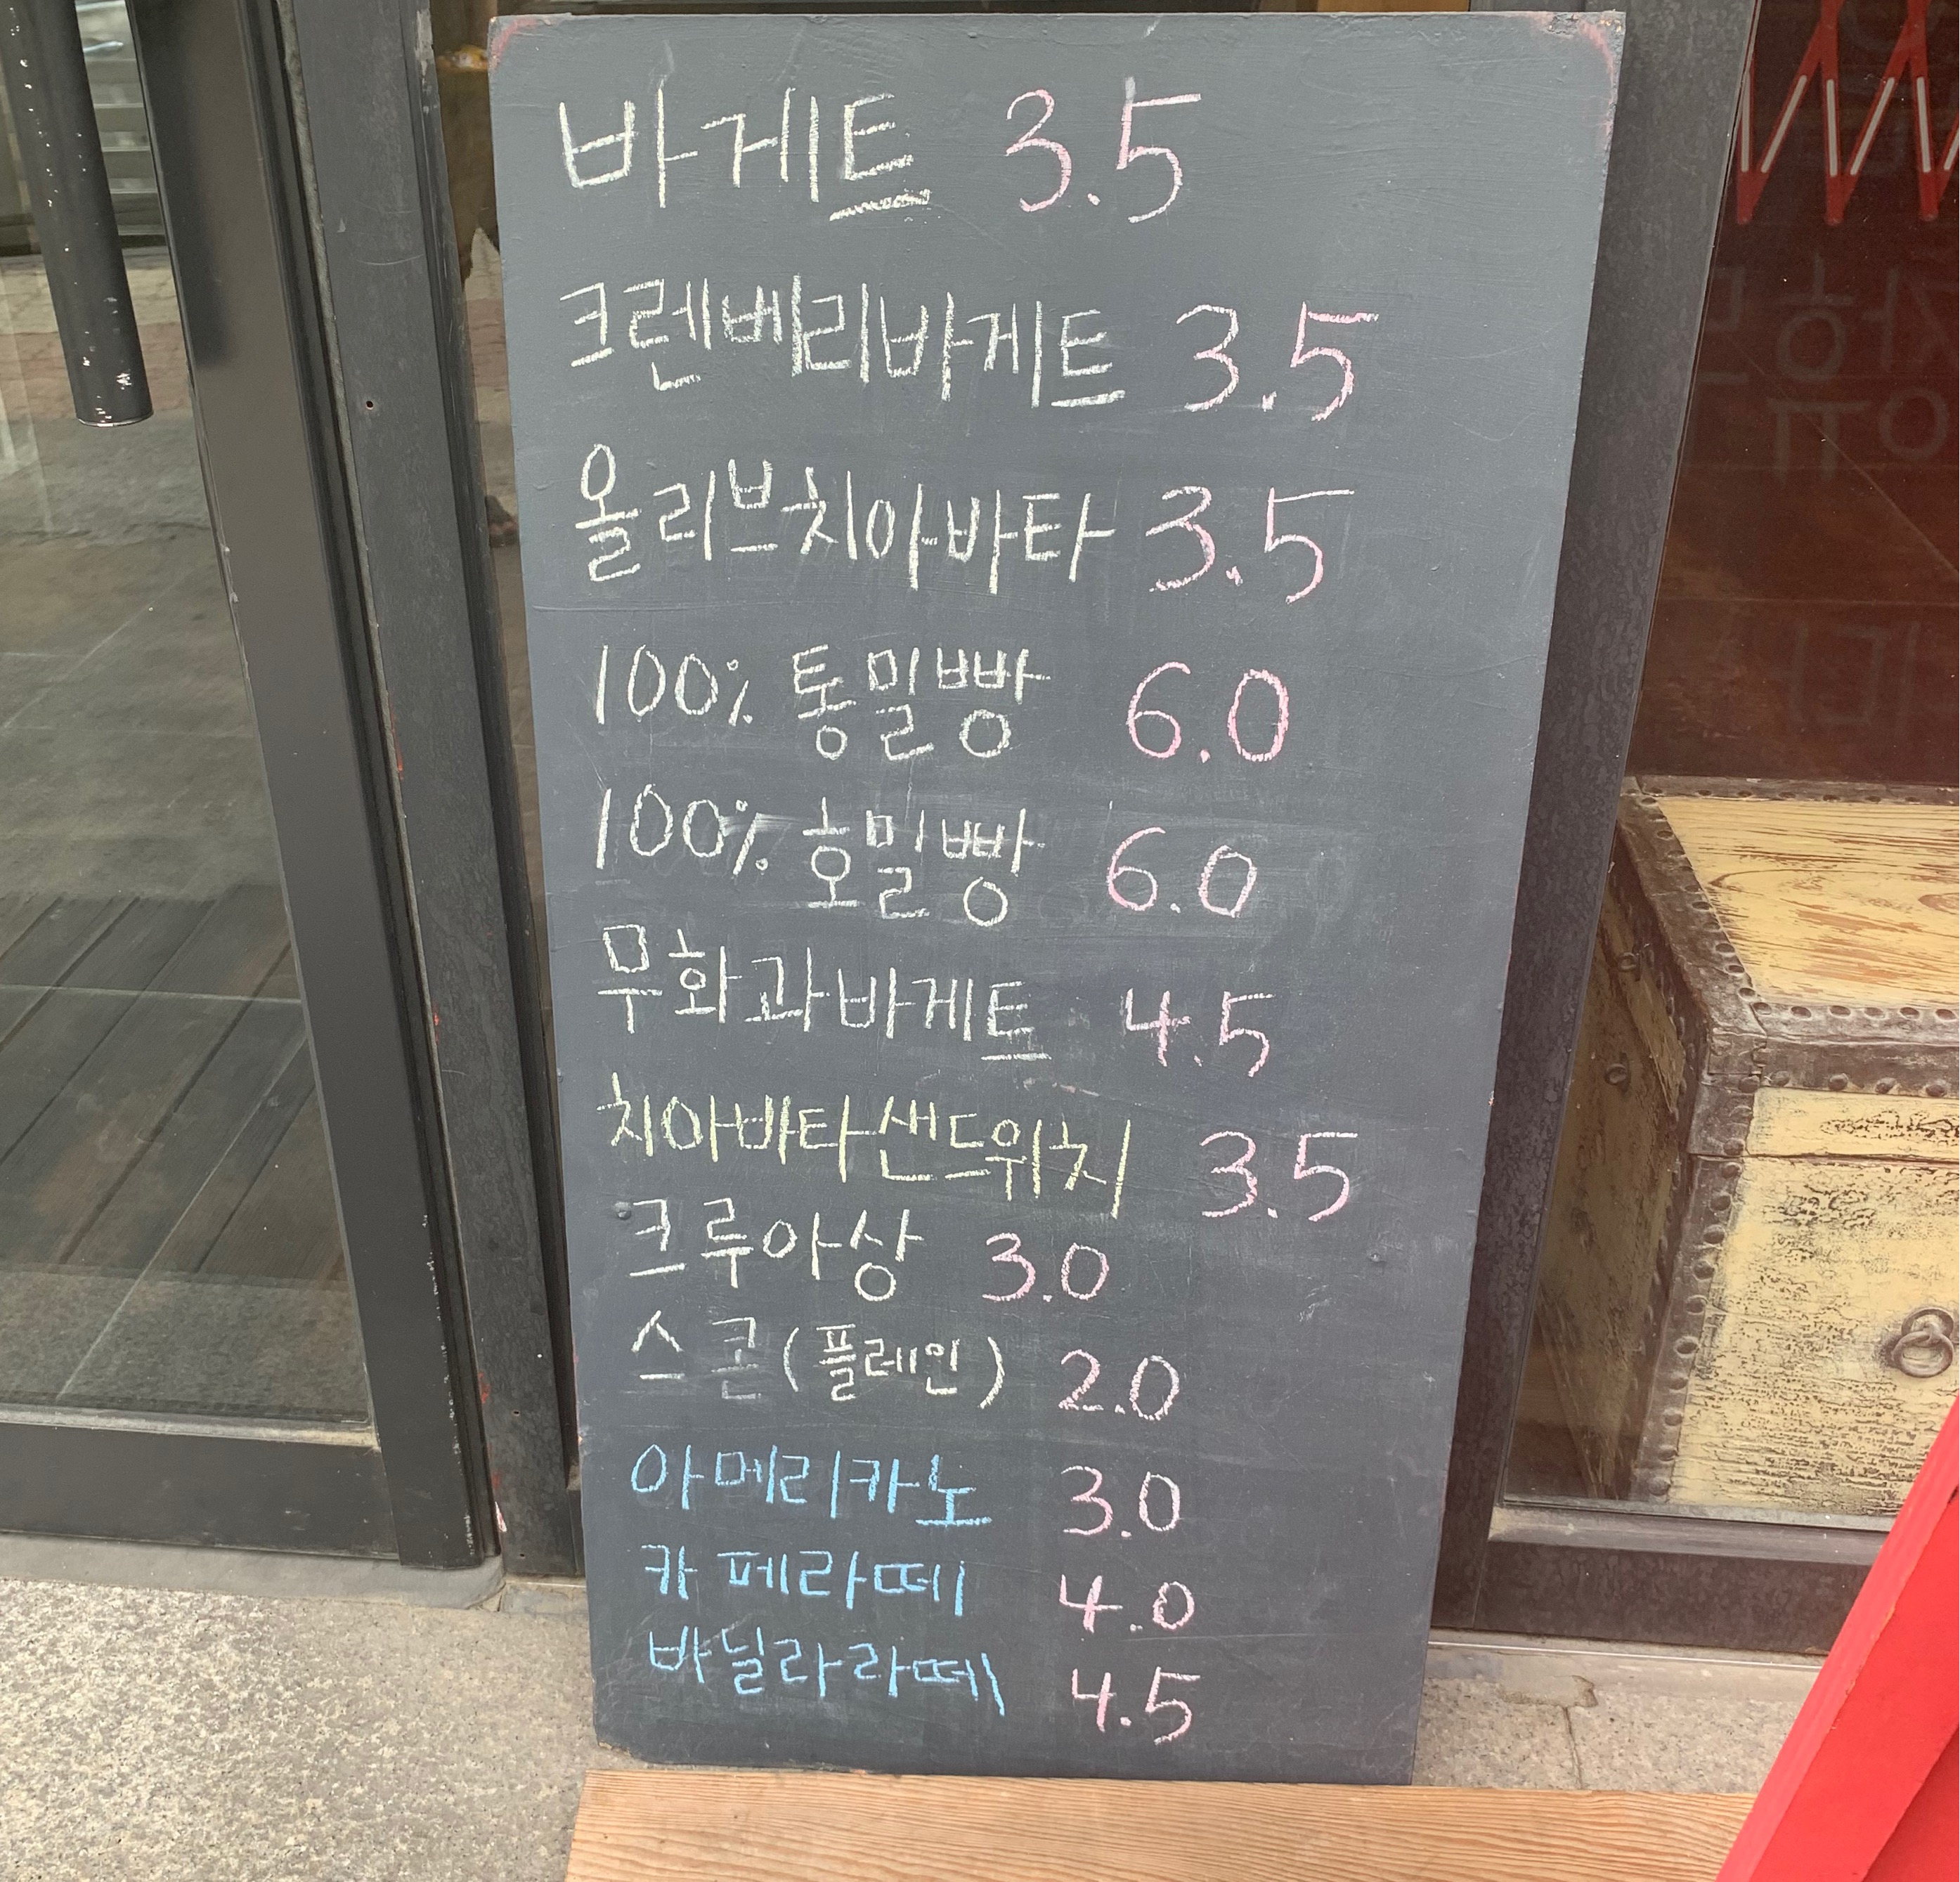 바게트 3.5
크렌베리바게트 3.5
올리브치아바타 3.5
100% 통밀빵 6.0
100% 호밀빵 6.0
무화과바게트 4.5
치아바타샌드위치 3.5
크루아상 3.0
스콘(플레인) 2.0
아메리카노 3.0
카페라떼 4.0
바닐라라떼 4.5